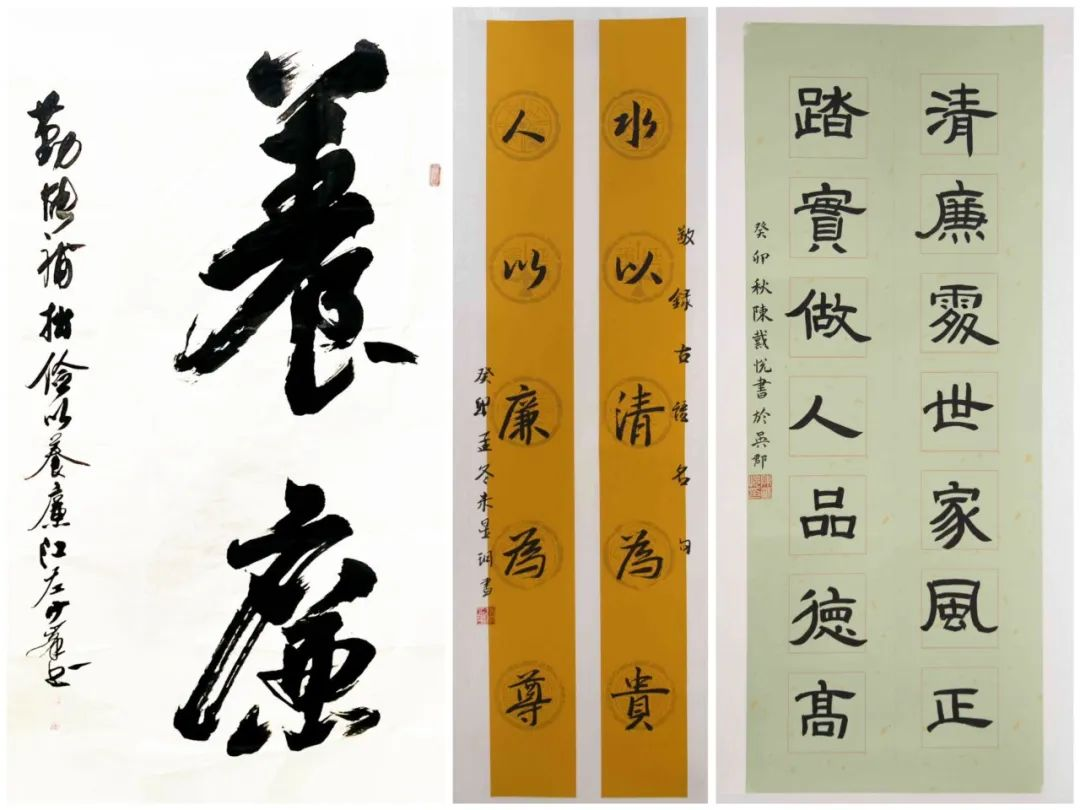 養廉
勤能補拙儉以養廉江左
水以清為貴
敬録古語名句
人以廉為尊
癸卯孟冬朱星書
清廉處世家風正
踏實做人品徳髙
癸卯秋陳戴悅書於吳郡